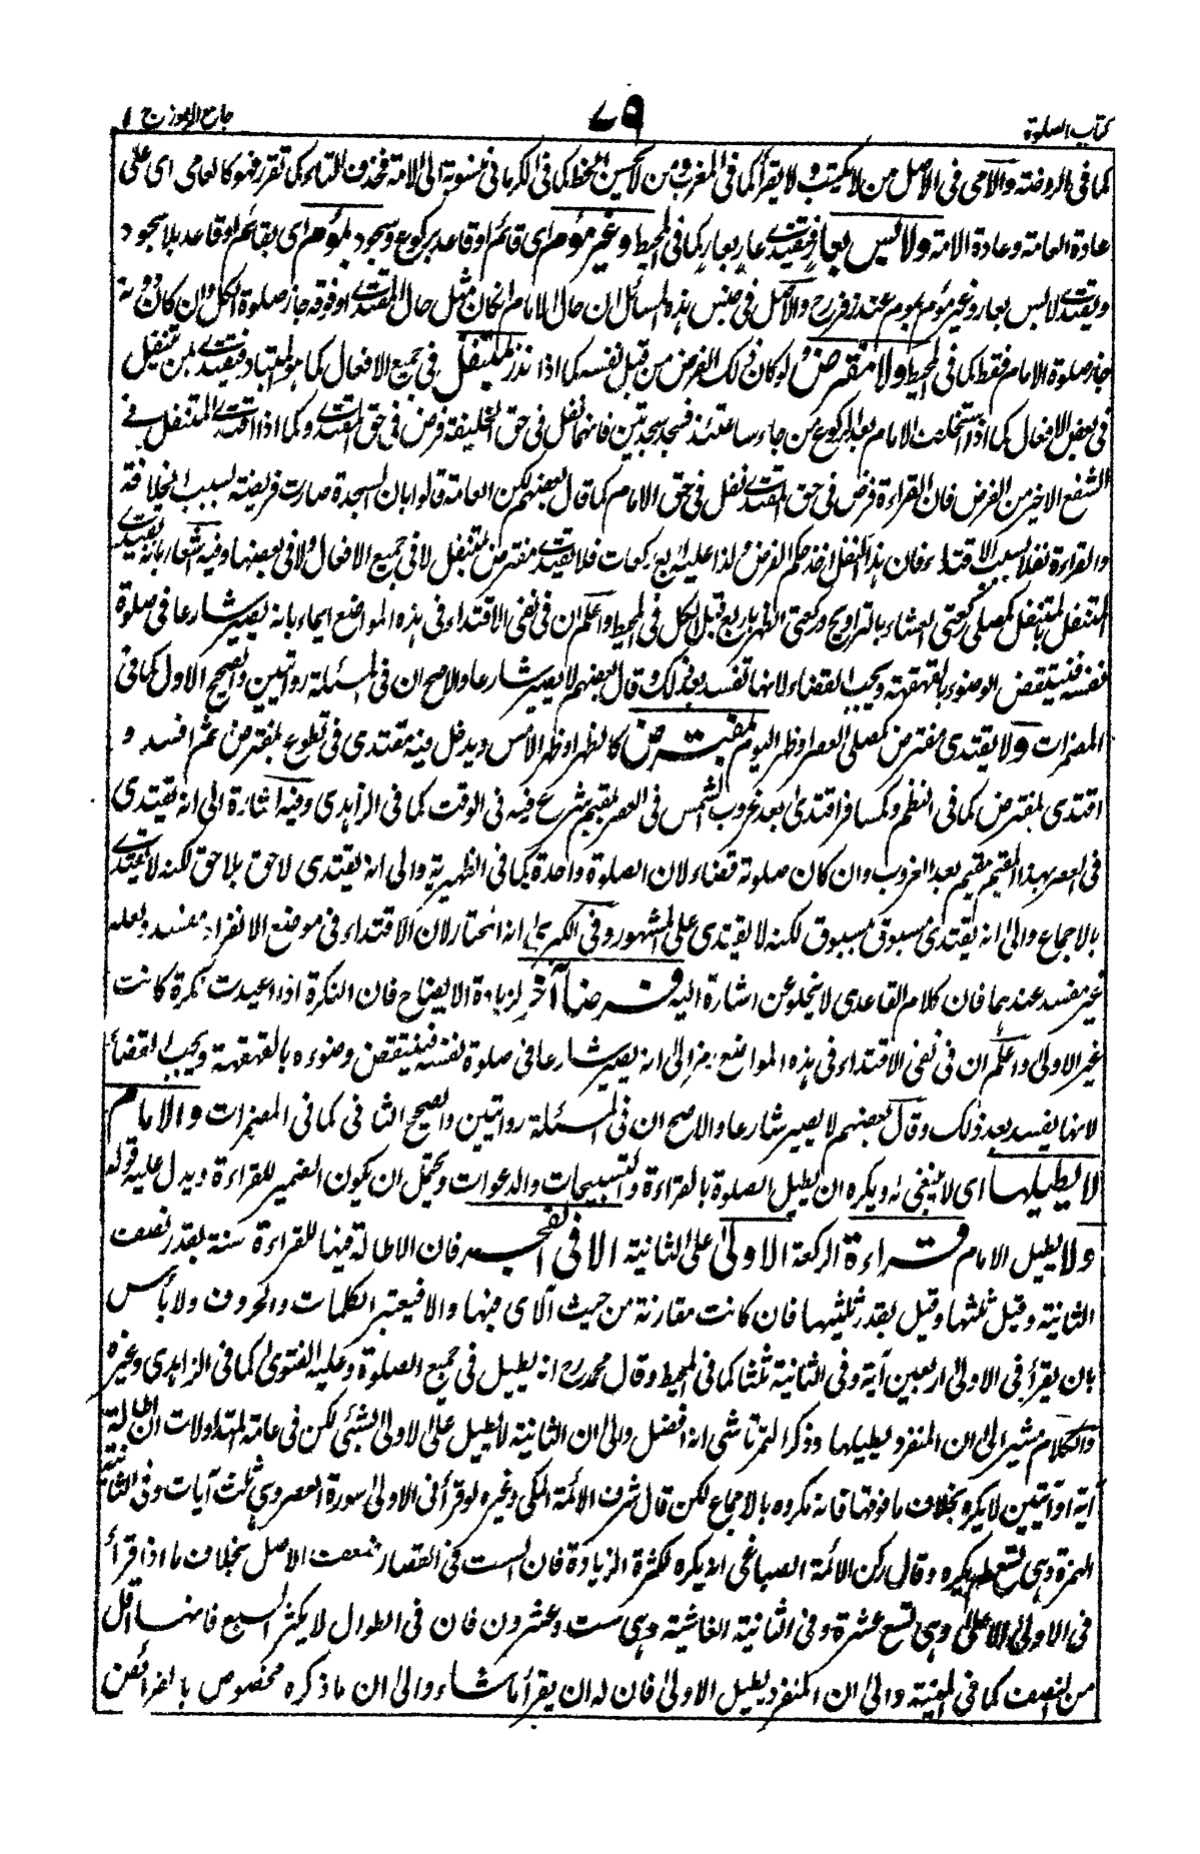 كتاب الصلوة
٧٩
جامع الرموز ج ١
كما فى الروضة والامى فى الاصل من لا يكتب ولا يقرأ كما فى المغرب ومن لا يحسن الخط كما فى الكرمانى منسوبة الى الامة فحذف التاء كما تقرر فهو كالعامى اى على
عادة العامة وعادة الامة ولا لابس بعار فيقتدى عار بعار كما فى المحيط وغير مؤم اى قائم او قاعد بركوع وسجود بمؤم اى بقائم او قاعد بلا سجود
ويقتدى لابس بعار وغير مؤم بموم عند زفر رح والاصل فى جنس هذه المسائل ان حال الامام ان كان مثل حال المقتدى او فوقه جاز صلوة الكل وان كان دونه
جاز صلوة الامام فقط كما فى المحيط ولا مفترض ولو كان ذلك الفرض من قبل نفسه كما اذا نذر بمتنفل فى جميع الافعال كما هو المتبادر فيقتدى بمن تنفل
فى بعض الافعال كما اذا استخلف الامام بعد الركوع من جاء ساعتئذ فسجد سجدتين فانهما نفل فى حق الخليفة فرض فى حق المقتدى وكما اذا اقتدى المتنفل فى
الشفع الاخير من الفرض فان القراءة فرض فى حق المقتدى نفل فى حق الامام كما قال بعضهم لكن العامة قالوا بان السجدة صارت فريضة لسبب الخلافة
والقراءة نفلا لسبب الاقتداء فان هذا النفل اخذ حكم الفرض ولذا عليه اربع ركعات فلا يقتدى مفترض بمتنفل لا فى جميع الافعال ولا فى بعضها وفيه اشعار بانه يقتدى
المتنفل بالمتنفل كمصلى ركعتى العشاء بالتراويح وركعتى الظهر باربع قبل الكل فى المحيط واعلم ان فى نفى الاقتداء فى هذه المواضع ايماء بانه يصير شارعا فى صلوة
نفسه فينتقض الوضوء بالقهقهة ويجب القضاء لانها تفسد بعد ذلك وقال بعضهم لا يصير شارعا والاصح ان فى المسئلة روايتين والصحيح الاول كما فى
المضمرات ولا يقتدى مفترض كمصلى العصر او ظهر اليوم بمفترض كالظهر او ظهر الامس ويدخل فيه مقتدى فى تطوع بمفترض ثم افسد و
اقتدى بمفترض كما فى النظم وكمسافر اقتدى بعد غروب الشمس فى العصر بمقيم شرع فيه فى الوقت كما فى الزاهدى وفيه اشارة الى انه يقتدى
فى العصر بهذا المقيم مقيم بعد الغروب وان كان صلوته قضاء لان الصلوة واحدة كما فى الظهيرية والى انه يقتدى لاحق بلاحق لكنه لا يقتدى
بالاجماع والى انه يقتدى مسبوق بمسبوق لكنه لا يقتدى على المشهور وفى الكبرى انه اختار لان الاقتداء فى موضع الانفراد مفسد ولعله
غير مفسد عندهما فان كلام القاعدى لا يخلو عن اشارة اليه فرضا آخر لزيادة الايضاح فان النكرة اذا اعيدت نكرة كانت
غير الاولى واعلم ان فى نفى الاقتداء فى هذه المواضع رمزا الى انه يصير شارعا فى صلوة نفسه فينتقض وضوءه بالقهقهة ويجب القضاء
لانها يفسد بعد ذلك وقال بعضهم لا يصير شارعا والاصح ان فى المسئلة روايتين والصحيح الثانى كما فى المضمرات والامام
لا يطيلها اى لا ينبغى له ويكره ان يطيل الصلوة بالقراءة والتسبيحات والدعوات ويحتمل ان يكون الضمير للقراءة ويدل عليه قوله
ولا يطيل الامام قراءة الركعة الاولى على الثانية الا فى الفجر فان الاطالة فيها للقراءة سنة بقدر نصف
الثانية وقيل ثلثها وقيل بقدر ثلثيها فان كانت مقارنة من حيث الآى فبها والا فيعتبر الكلمات والحروف ولا بأس
بان يقرأ فى الاولى اربعين آية وفى الثانية ثلثا كما فى المحيط وقال محمد رح انه يطيل فى جميع الصلوة وعليه الفتوى كما فى الزاهدى وغيره
والكلام مشير الى ان المنفرد يطيلها وذكر التمرتاشى انه افضل والى ان الثانية لا يطيل على الاولى بشئ لكن فى عامة المتداولات ان اطالة
آية او آيتين لا يكره بخلاف ما فوقها فانه مكروه بالاجماع لكن قال شرف الائمة المكى وغيره لو قرأ فى الاولى سورة العصر وهى ثلث آيات وفى الثانية
الهمزة وهى تسع لم يكره وقال ركن الائمة الصباغى انه يكره لكثرة الزيادة فان الست فى القصار ضعف الاصل بخلاف ما اذا قرأ
فى الاولى الاعلى وهى تسع عشرة وفى الثانية الغاشية وهى ست وعشرون فان فى الطوال لا يكثر السبع فانها اقل
من النصف كما فى المنية والى ان المنفرد يطيل الاولى فان له ان يقرأ ما شاء والى ان ما ذكره مخصوص بالفرائض